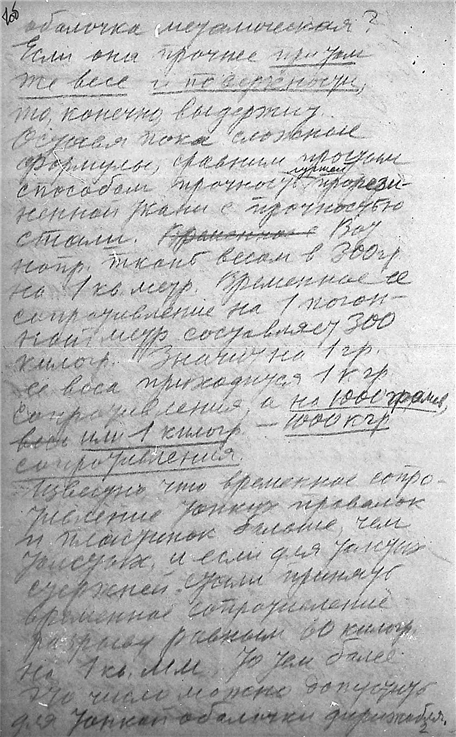 оболочка металическая?
Если она прочнее при том
же весе и поверхности,
то, конечно, выдержит.
Оставя пока сложные
формулы, сравним простым
способом прочность лучшей прорези-
ненной ткани с прочностью
стали. Вот
напр. ткань весом в 300 гр
на 1 кв. метр. Временное ее
сопротивление на 1 погон-
ный метр составляет 300
килогр. Значит на 1 гр.
ее веса приходится 1 кгр
сопротивления, а на 1000 грамм,
веса или 1 килогр — 1000 кгр
сопротивления.
Известно что временное сопро-
тивление тонких проволок
и пластинок больше, чем
толстых, и если для толстых
стержней стали принять
временное сопротивление
разрыву равным 60 килогр
на 1 кв. мм то тем более
это число можно допустить
для тонкой оболочки дирижабля.